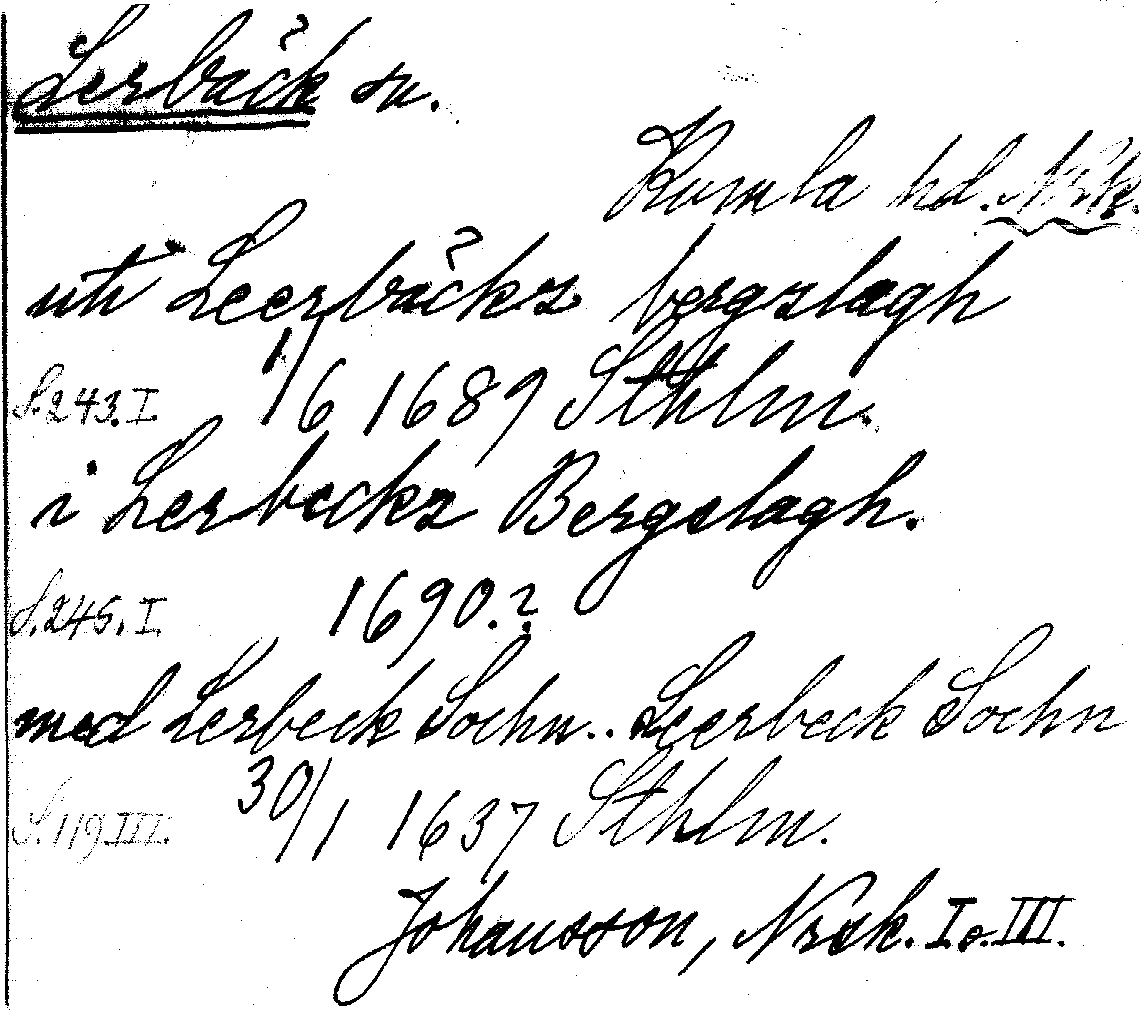 Lerbäck sn.
Kumla hd. Närke.
uti Leerbäckz bergzlagh
S. 243. I. 1/6 1689 Sthlm.
i Lerbeckz Bergslagh.
S. 245. I. 1690.?
med Lerbeck Sochn.. Leerbeck Sochn
S. 119. III. 30/1 1637 Sthlm.
Johansson, Nrsk. I o. III.